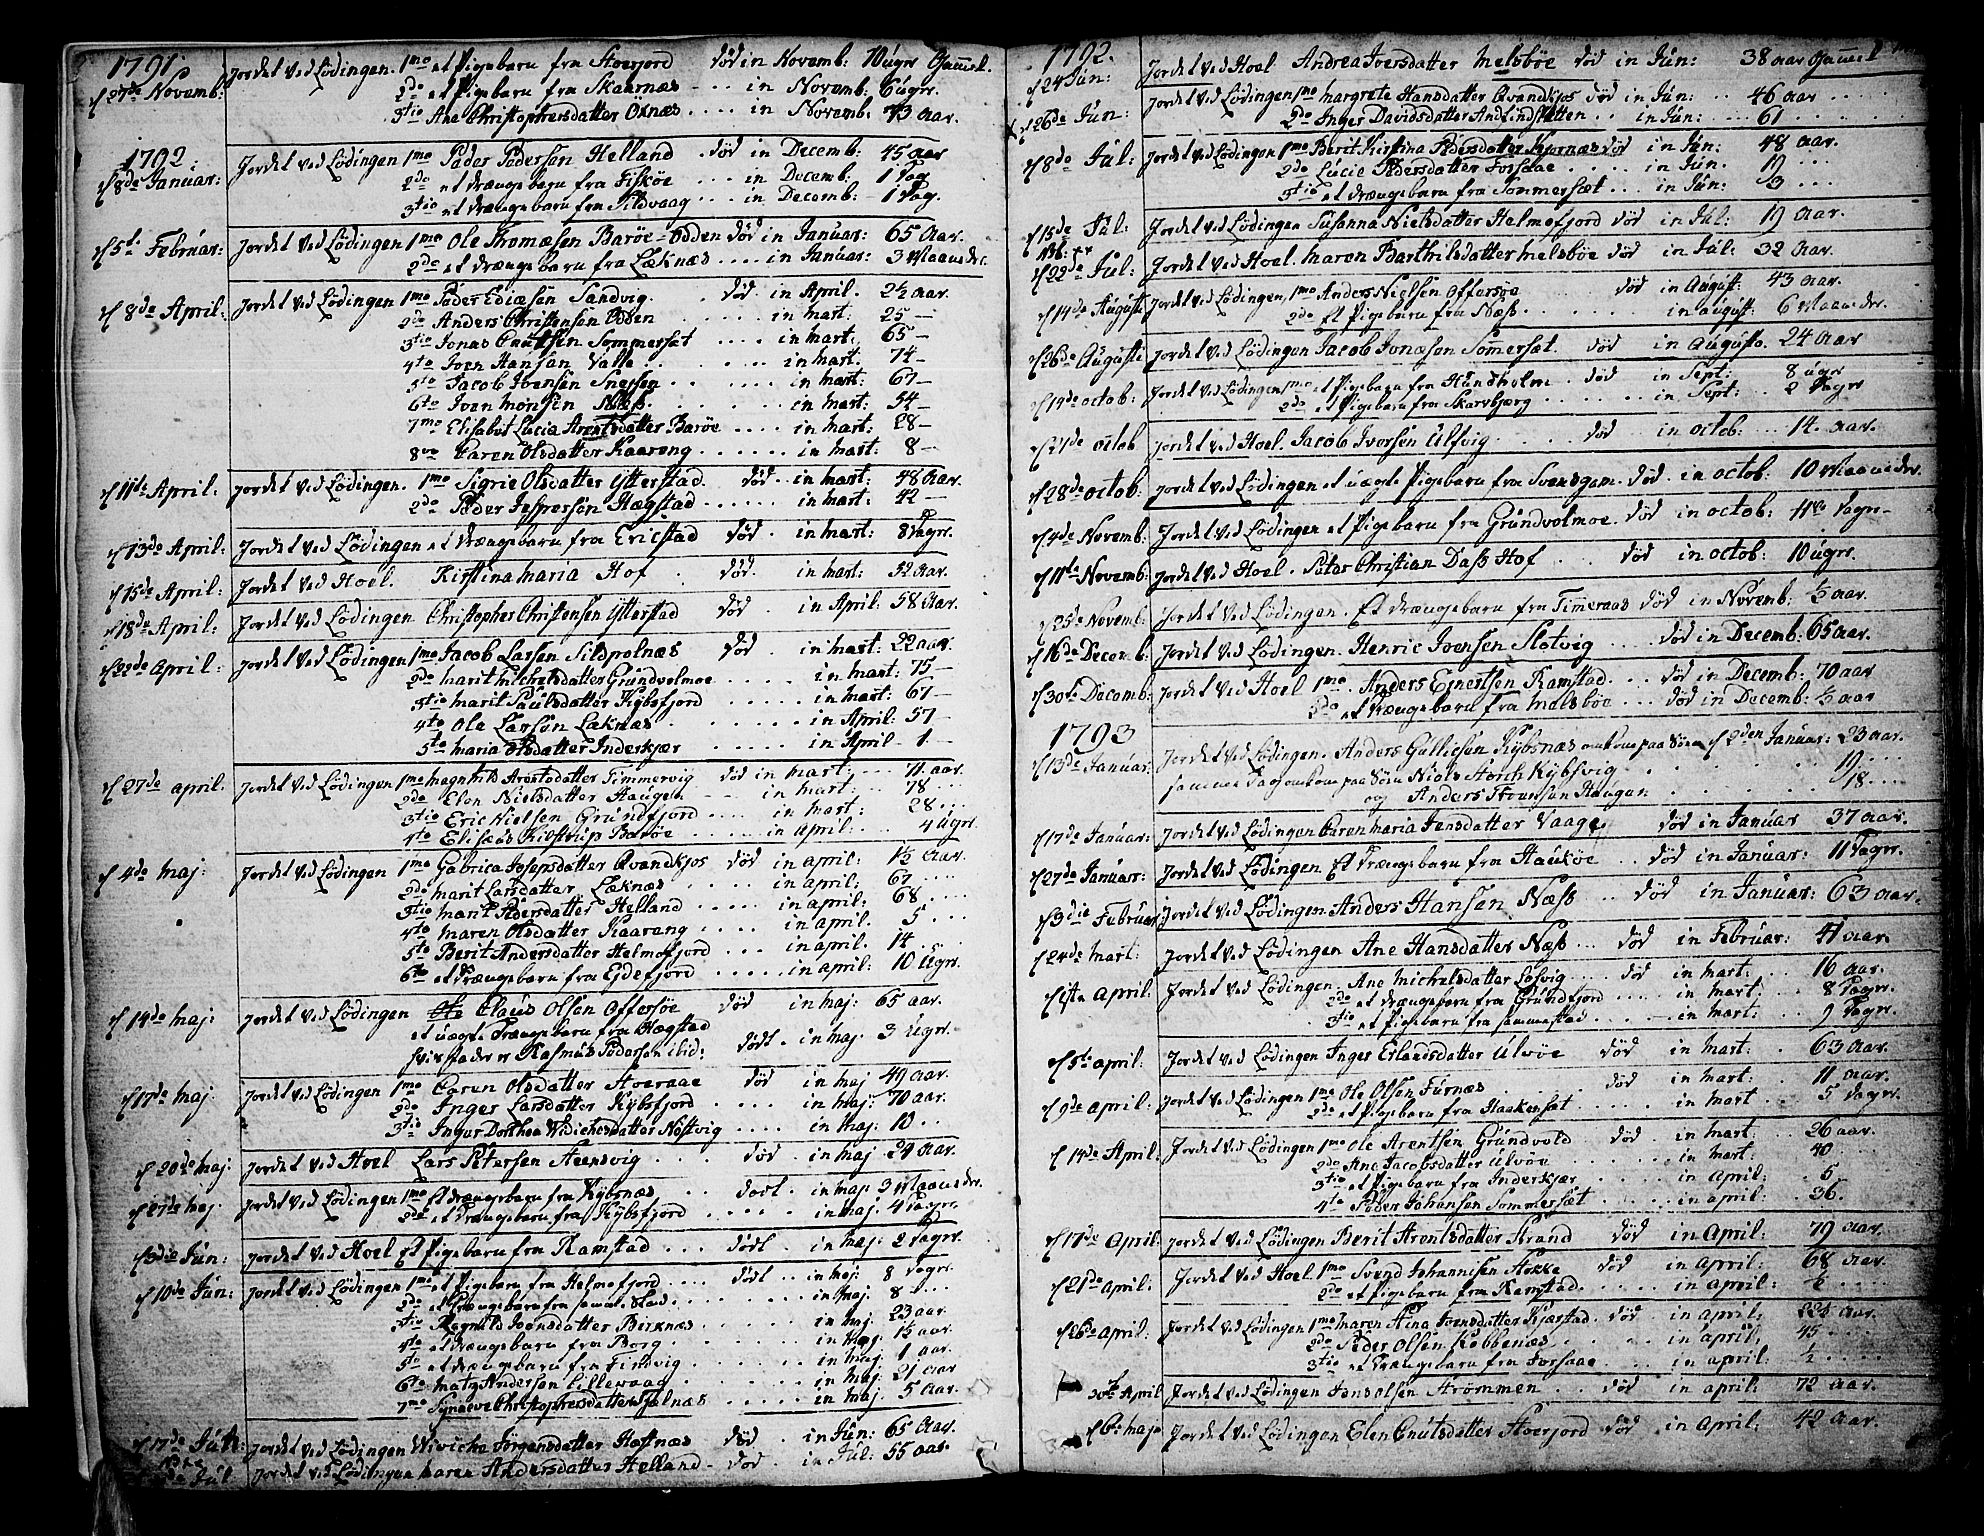 1791.
d 27de Novemb: Jordet ved Lödingen. 1mo et Pigebarn fra Stoerjord död in Novemb: 10 ugrs Gamel.
2do et Pigebarn fra Skaarnæs - .. in Novemb: 6 ugrs.
3tio Ane Christophersdatter Oxnæs .... in Novemb. 73 aar.
1792.
d 8de Januar: Jordet ved Lödingen 1mo Peder Pedersen Helland död in Decemb: 45 aar
2do et drængebarn fra Fiskøe ... in Decemb. 1 Dag
3tio et drængebarn fra Sildvaag ... in Decemb: 1 Dag.
d 5te Februar: Jordet ved Lödingen 1mo Ole Thomæsen Barøe-Odden död in Januar: 65 aar.
2do et drængebarn fra Læknæs .... in Januar: 3 Maaneder.
d 8de April: Jordet ved Lödingen 1mo Peder Ediæsen Sandvig. . död. in April. 2½ aar.
2do Anders Christensen Odden .... in mart: 25 —
3tio Jonas Cnutsen Sommersæt .... in mart: 65 —
4to Iven Hansen Valle .... in mart: 74 —
5to Jacob Ivensen .... in mart: 67 —
6to Iven Monsen Næss .... in mart: 54 —
7mo Elisabet Lucia Arentsdatter Barøe .... in mart: 28 —
8vo Caren Olsdatter Kaareng ..... in mart: 8 —
d 11te April: Jordet ved Lödingen. 1mo Sigrie Olsdatter Ytterstad död.. in mart: 48 aar.
2do Peder Jespersen Hægstad .... in mart: 42 —
d 13de April: Jordet ved Lödingen et drængebarn fra Ericstad död. in mart: 8 Dagr.
d 15de April: Jordet ved Hoel. Kirstina Maria Hof . död. in mart: 52 aar.
d 18de April: Jordet ved Lödingen Christopher Christensen Ytterstad död . in April: 58 aar.
d 22de April: Jordet ved Lödingen 1mo Jacob Larsen Sildpolnæs död . in mart: 22 aar.
2do Marit Michelsdatter Grundvolmoe ..... in mart: 75 —
3tio Marit Paulsdatter Kybsfjord ...... in mart: 67 —
4to Ole Larsen Læknæs ....... in April: 57 —
5to Maria Olsdatter Inderkjær ..... in April - 1 —
d 27de april. Jordet ved Lödingen 1mo Magnhild Arentsdatter Timmervig död in mart: ... 71 aar.
2do Elen Nielsdatter Haugen — in mart: ... 78 ...
3tio Eric Nielsen Grundfjord .... in mart: 28 ...
4to Eliseus Kilstrup Barøe .... in april: .. 4 ugr.
d 4de maj: Jordet ved Lödingen 1mo Gabrica Josepsdatter Qvandkjos död in april: 1½ aar.
2do Marit Larsdatter Læknæs .... in april: 67 ....
3tio Marit Pedersdatter Helland .... in april: 68 ....
4to Maren Olsdatter Kaareng .... in april. 5 ....
5to Berit Andersdatter Helmofjord .... in april: 14 ....
6to et drængebarn fra Ejdefjord ..... in april: 10 ugr.
d 14de maj: Jordet ved Lödingen Claus Olsen Offersøe död in maj: 65 aar.
et uægte Drængebarn fra Hægstad
Rasmus Pedersen ibid: dödt. in maj. 3 ugr.
d 17de maj Jordet ved Lödingen 1mo Caren Olsdatter Stoeraae död in maj 49 aar.
2do Inger Larsdatter Kybsfjord .... in maj: 70 aar.
3tio Inger Dorthea Wiichesdatter Nöstvig .... in maj. 10 ..
d 20de maj: Jordet ved Hoel Lars Petersen Steensvig ... död . in maj 29 aar.
d 27de maj. Jordet ved Lödingen 1mo Et drængebarn fra Kybsnæs .. dödt . in maj 3 Maaneder.
2do et Drængebarn fra Kybsfjord .... in maj. 4 Dagr.
d 3die Jun: Jordet ved Hoel Et Pigebarn fra Ramstad ... dödt .. in maj. 2 Dagr.
d 10de Jun: Jordet ved Lödingen 1mo et Pigebarn fra Helmofjord .... dödt .. in maj: 8 Dagr.
2do et Drængebarn fra samme Stad. ...... in maj. 8 ...
3tio Ragnild Ivensdatter Birknæs ...... in maj. 23 aar
4to et drængebarn fra Borg ..... in maj. 1½ aar.
5to et drængebarn fra Findvig ..... in maj: 1 aar.
6to Matz Andersen Lillevaag ..... in maj: 21 aar
7mo Synneve Christophersdatter .... in maj. 5 aar.
d 17de Jun: Jordet ved Lödingen Wivicha Jörgensdatter Hoftnæs död . in Jun: 65 aar.
de Jul Jordet ved Lödingen Maren Andersdatter Helland - död . in Jul: 55 aar.
1792.
d 24 Jun: Jordet ved Hoel Andrea Iversdatter Melsböe död in Jun: 38 aar Gamel
d 26de Jun: Jordet ved Lödingen 1mo Margrete Hansdatter Qvandkjos död in Jun: .. 46 aar ....
2do Inger Davidsdatter .. in Jun: ... 61 ....
d 8de Jul: Jordet ved Lödingen 1mo Berit Kistina Pedersdatter Kjornæs död in Jun: 48 aar.
2do Lucie Pedersdatter Forsaae .... in Jun. 19 ...
3tio et drængebarn fra Sommersæt ... in Jun: 3 ...
d 15de Jul: Jordet ved Lödingen Susanna Nielsdatter Helmofjord död in Jul: 19 aar.
d 22de Jul: Jordet ved Hoel. Maren Barthilsdatter Melsböe död in Jul: 32 aar.
d 14de Augusti Jordet ved Lödingen 1mo Anders Nielsen Offersøe .... död in August: 43 aar
2do Et Pigebarn fra Næss ..... in august: 6 Maaneder.
d 26de Augusti Jordet ved Lödingen Jacob Jonæsen Somersæt. död in Augusto. 24 aar
d 14de octob: Jordet ved Lödingen 1mo et Pigebarn fra Hundholm .. död in Sept: 8 ugr
2do et Pigebarn fra Skarvbjerg ..... in Sept: 2 Dagr
d 21de octob Jordet ved Hoel. Jacob Iversen Ulsvig .... död in octob: ... 14. aar.
d 28de octob: Jordet ved Lödingen et uægte Pigebarn fra Svensgam. död. in octob: 10 Maaneder.
d 4de Novemb: Jordet ved Lödingen et Pigebarn fra Grundvolmoe. död in octob: 11 Dagr-
d 11te Novemb: Jordet ved Hoel. Peter Christian Dass Hof .. död in octob: 10 ugr.
d 25de Novemb: Jordet ved Lödingen. Et drængebarn fra Timeraas död in Novemb: ½ aar.
d 16de Decemb: Jordet ved Lödingen. Henric Ivensen Slotvig .... död in Decemb: 65 aar.
d 30te Decemb: Jordet ved Hoel 1mo. Anders Ernestsen Ramstad ... död in Decemb: 70 aar
2do et Drængebarn fra Melsböe ... död in Decemb: ½ aar
1793
d 13de Januar: Jordet ved Lödingen. Anders Gulliesen Kybsnæs omkom paa Söen d 2den Januar: 23 aar.
samme Dag omkom paa Söen Niels Storch Kybsvig ...... 19 ....
og Anders Svensen Haugen ...... 18 ....
d 17de Januar: Jordet ved Lödingen Caren Maria Jensdatter Vaage död in Januar 37 aar.
d 27de Januar: Jordet ved Lödingen Et Drængebarn fra Haukøe .. död in Januar: 11 Dagr.
d 3die Februar: Jordet ved Lödingen Anders Hansen Næss ... död in Januar: 63 aar.
d 24de mart: Jordet ved Lödingen Ane Hansdatter Næss ... död in Februar: 41 aar.
d 1ste april: Jordet ved Lödingen. Ane Michelsdatter Løsvig .... död in mart .. 16 aar.
2do et drængebarn fra Grundfjord ..... in mart ... 8 Dagr.
3tio et Pigebarn fra Sammestad ..... in mart: ... 9 Dagr.
d 5te april: Jordet ved Lödingen Inger Erlandsdatter Ulvøe död in mart: . 63 aar.
d 9de april: Jordet ved Lödingen 1mo Ole Olsen Furnæs .... död in mart: ... 11 aar.
2do et Pigebarn fra Haakersæt ..... in mart ... 5 Dagr.
d 14de April: Jordet ved Lödingen 1mo Ole Arentsen Grundvold död . in mart: ... 26 aar.
2do Ane Jacobsdatter Ulvøe ...... in mart: 40 ....
3tio et Pigebarn fra Inderkjær ..... in april: .. 5 ....
4to Peder Johansen Sommersæt ..... in april: .. 36 ....
d 17de April: Jordet ved Lödingen Berit Arentsdatter Strand död in April: 79 aar.
d 21de april: Jordet ved Hoel. 1mo Svend Johannisen Stokke död in april: 68 aar.
2do et Pigebarn fra Ramstad ..... in april: 6 ....
d 26de april: Jordet ved Lödingen 1mo Maren Ivensdatter Kjærstad. död . in april: 22½ aar.
2do Peder Olsen Kobbenæs ..... in april: 45 ....
3tio et Drængebarn fra Forsaae ..... in april: ½ ....
30te April Jordet ved Lödingen Jens Olsen Strömmen ... död .. in april: 72 aar.
d 6te maj Jordet ved Lödingen Elen Cnutsdatter Stoerjord död .. in April: 42 aar.